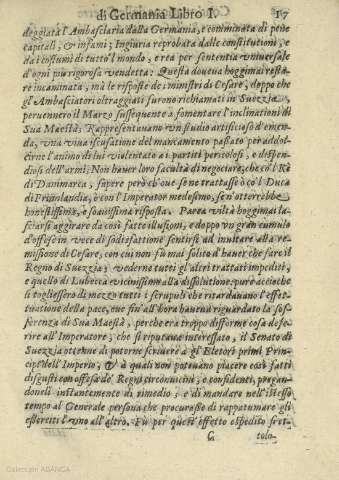 di Germania Libro I. 17
deggiata l'Ambasciaria dalla Germania, e cominata di pene
capitali, & infami; Ingiuria reprobata dalle constitutioni, e
da i costumi di tutto'l mondo, e rea per sententia vniuersale
d'ogni piu rigorosa vendetta: Questa doueua hoggimai restare
incaminata, mà le risposte de i ministri di Cesare, doppo che
gl'Ambasciatori oltraggiati furono richiamati in Suezzia,
peruennero il Marzo sussequente a fomentare l'inclinationi di
Sua Maestà; Rappresentauano vn studio artificioso d'emenda,
vna viua iscusatione del mancamento passato per addolcirne
l'animo di lui violentato ai partiti pericolosi, e dispendiosi
dell'armi; Non hauer loro facultà di negociare, che co'l Rè
di Danimarca, sapere però ch'oue se ne trattasse ò co'l Duca
di Frislandia, ò con l'Imperator medesimo, se n'otterrebbe
honestissima, e soauissima risposta. Parea viltà hoggimai lasciarsi
aggirare da così fatte illusioni, e doppo vn gran cumulo
d'offese in vece di sodisfattione sentirsi ad inuitare alla remissione
di Cesare, con cui non fù mai solito d'hauer che fare il
Regno di Suezzia; vederne tutti gl'altri trattati impediti,
e quello di Lubecca vicinissimo alla dissolutione, pure acciochè
li togliessero di mezzo tutti i scrupuli che ritardauano l'effettuatione
della pace, e ne fin'all'hora haueua riguardato la sofferenza
di Sua Maestà, perche era troppo difforme cosa deferire
all'Imperatore; che si riputaua interessato, il Senato di
Suezzia ottenne di poterne scriuere à gl'Elettori primi Principi
dell'Imperio; & à quali non poteuano piacere così fatti
disgusti con offesa de' Regni circonuicini, e confidenti, pregandoneli
instantemente di rimedio; e di mandare nell'istesso
tempo al Generale persona che procurasse di rappatumare gli
esserciti l'vno all'altro. Fù per quest'effetto espedito
C tolo-
Colección ABANCA